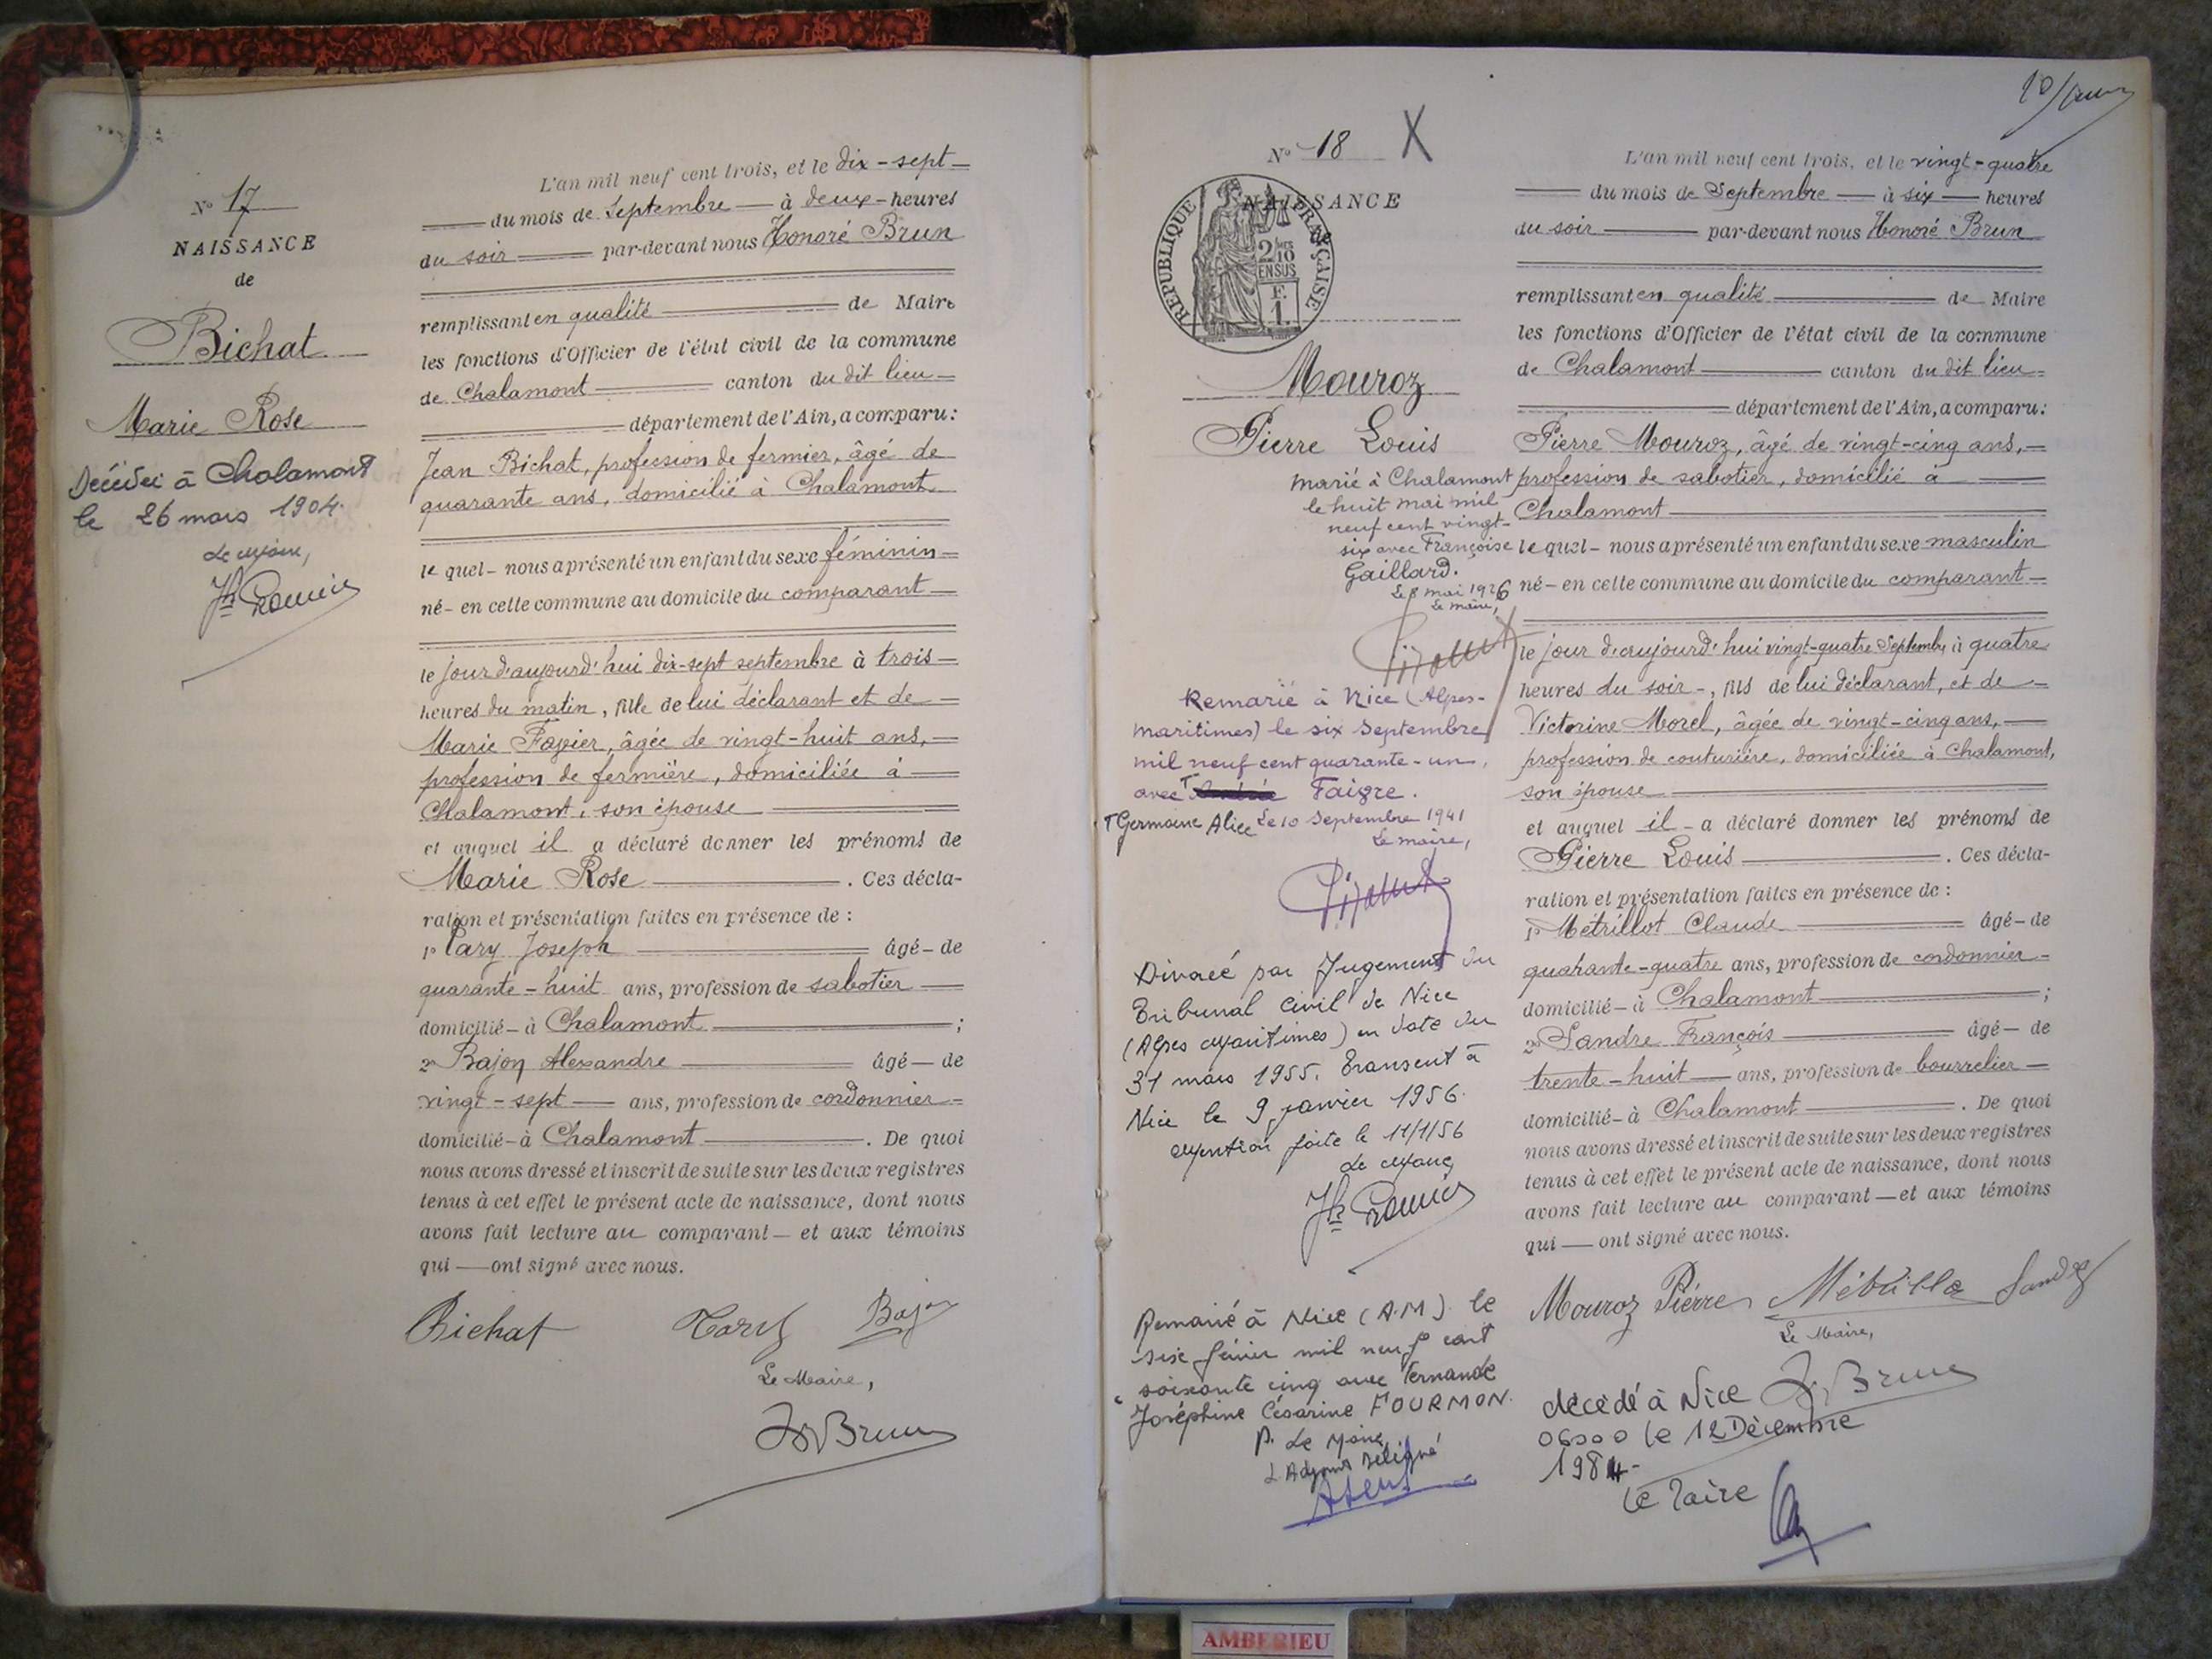 Nº 17
NAISSANCE
de
Bichat
Marie Rose
Décédée à Chalamont
le 26 mars 1904.
Le Maire,
L'an mil neuf cent trois, et le dix-sept
du mois de Septembre à deux heures
du soir par-devant nous Honoré Brun
remplissant en qualité de Maire
les fonctions d'Officier de l'état civil de la commune
de Chalamont canton du dit lieu
département de l'Ain, a comparu :
Jean Bichat, profession de fermier, âgé de
quarante ans, domicilié à Chalamont
le quel nous a présenté un enfant du sexe féminin
né en cette commune au domicile du comparant
le jour d'aujourd'hui dix-sept septembre à trois
heures du matin, fille de lui déclarant et de
Marie Favier, âgée de vingt-huit ans,
profession de fermière, domiciliée à
Chalamont, son épouse
et auquel il a déclaré donner les prénoms de
Marie Rose . Ces décla-
ration et présentation faites en présence de :
1º Joseph âgé de
quarante-huit ans, profession de sabotier
domicilié à Chalamont ;
2º Bajon Alexandre âgé de
vingt-sept ans, profession de cordonnier
domicilié à Chalamont . De quoi
nous avons dressé et inscrit de suite sur les deux registres
tenus à cet effet le présent acte de naissance, dont nous
avons fait lecture au comparant et aux témoins
qui ont signé avec nous.
Bichat Bajon
Le Maire,
Hré Brun
Nº 18 X
NAISSANCE
de
RÉPUBLIQUE FRANÇAISE
2/10 EN SUS
F.
1.
Mouroz
Pierre Louis
marié à Chalamont
le huit mai mil
neuf cent vingt-
six avec Françoise
Gaillard.
Le 8 mai 1926
Le maire,
Remarié à Nice (Alpes-
maritimes) le six Septembre
mil neuf cent quarante-un,
avec Faivre.
Germaine Alice Le 10 Septembre 1941
Le maire,
Divorcé par Jugement du
Tribunal Civil de Nice
(Alpes Maritimes) en date du
31 mars 1955. Transcrit à
Nice le 9 janvier 1956.
Mention faite le 11/1/56
Le Maire
Remarié à Nice (A.M) le
seize février mil neuf cent
soixante cinq avec Fernande
Joséphine Césarine FOURMON.
P. Le Maire,
L'Adjoint délégué
L'an mil neuf cent trois, et le vingt-quatre
du mois de Septembre à six heures
du soir par-devant nous Honoré Brun
remplissant en qualité de Maire
les fonctions d'Officier de l'état civil de la commune
de Chalamont canton du dit lieu
département de l'Ain, a comparu :
Pierre Mouroz, âgé de vingt-cinq ans,
profession de sabotier, domicilié à
Chalamont
le quel nous a présenté un enfant du sexe masculin
né en cette commune au domicile du comparant
le jour d'aujourd'hui vingt-quatre Septembre à quatre
heures du soir, fils de lui déclarant, et de
Victorine Morel, âgée de vingt-cinq ans,
profession de couturière, domiciliée à Chalamont,
son épouse
et auquel il a déclaré donner les prénoms de
Pierre Louis . Ces décla-
ration et présentation faites en présence de :
1º Métrillot Claude âgé de
quarante-quatre ans, profession de cordonnier
domicilié à Chalamont ;
2º Sandre François âgé de
trente-huit ans, profession de bourrelier
domicilié à Chalamont . De quoi
nous avons dressé et inscrit de suite sur les deux registres
tenus à cet effet le présent acte de naissance, dont nous
avons fait lecture au comparant et aux témoins
qui ont signé avec nous.
Mouroz Pierre Sandre
Le Maire,
Hré Brun
décédé à Nice
06000 le 12 Décembre
1984
le Maire
AMBERIEU